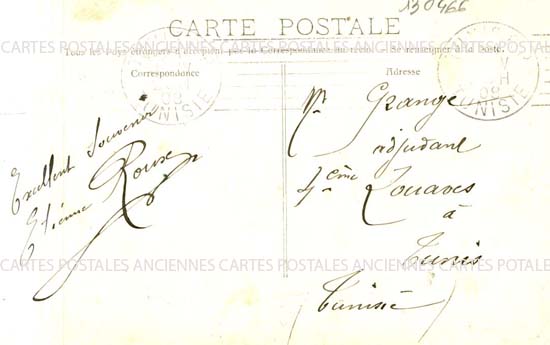 130466
CARTE POSTALE
Tous les pays étrangers n'acceptent pas la Correspondance au recto. (Se renseigner à la poste).
Correspondance
Adresse
Excellent Souvenir
Etienne Roux
Mr Grange
adjudant
4ème Zouaves
à
Tunis
Tunisie
TUNISIE
08
TUNISIE
08
CARTES POSTALES ANCIENNES CARTES POSTALES ANCIENNES CARTES POTALES
CARTES POSTALES ANCIENNES CARTES POSTALES ANCIENNES CARTES POTALES